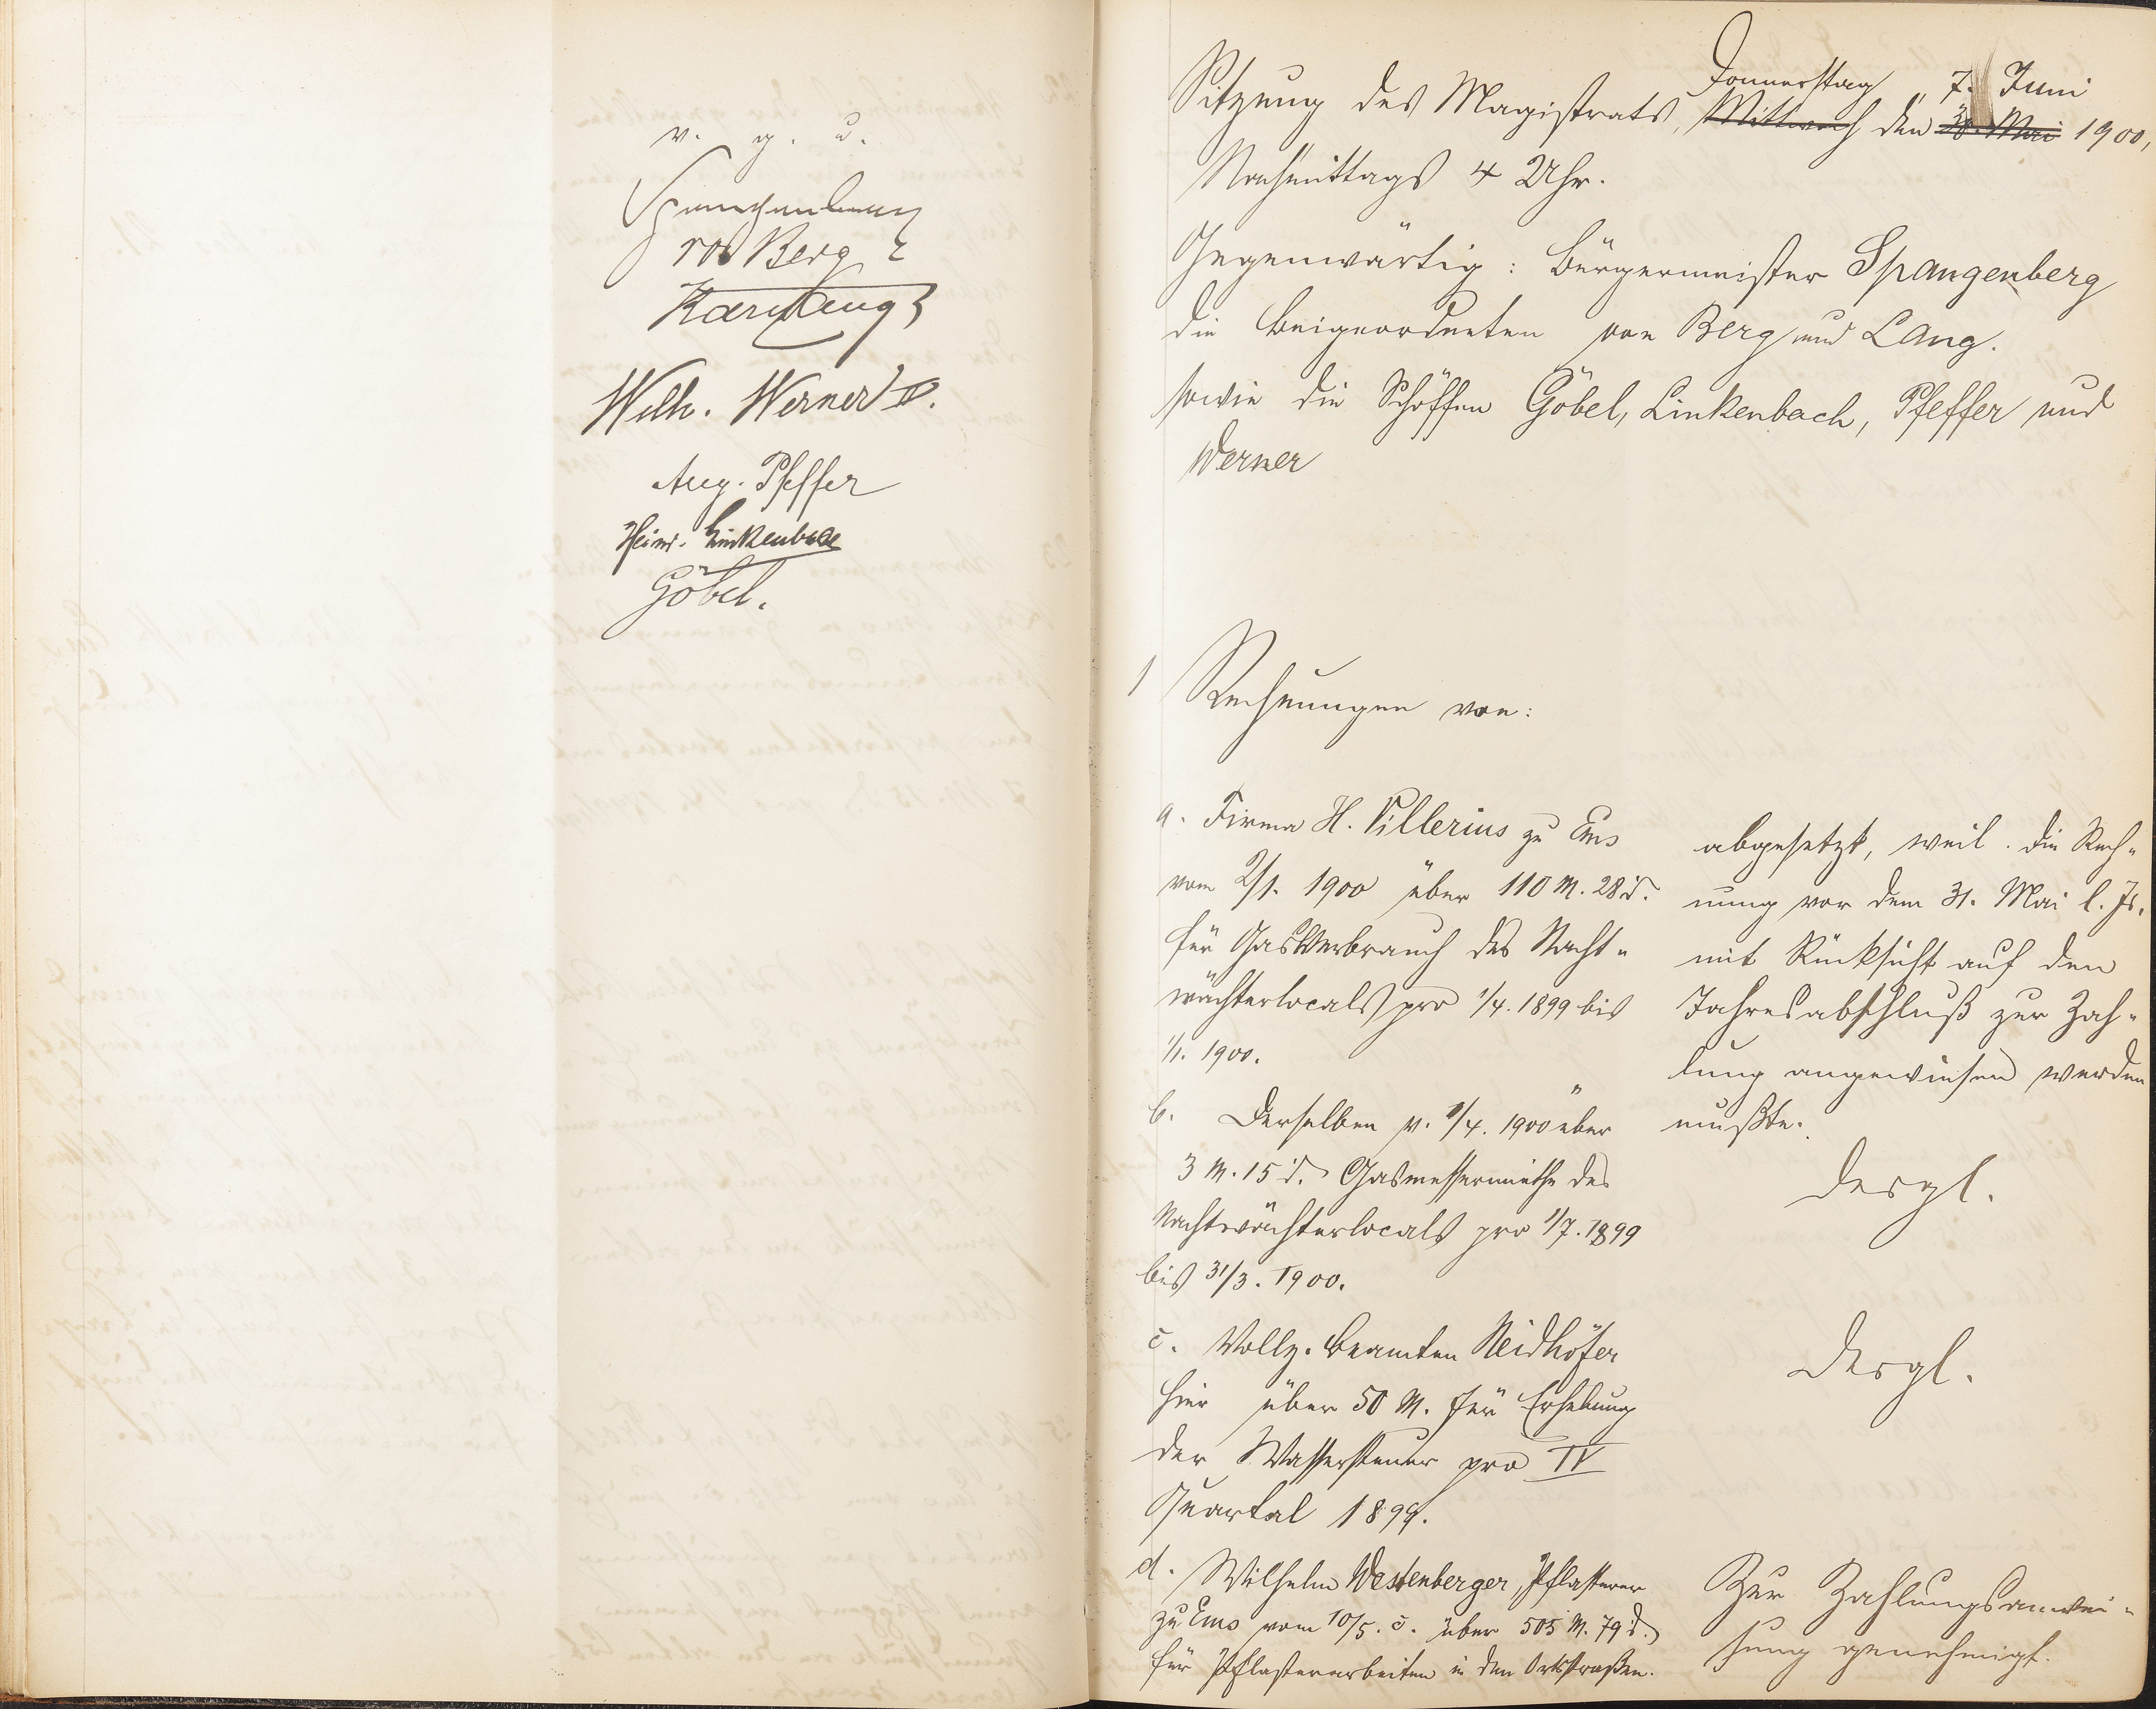 v. g. u.
Spangenberg
von Berg
Karl Lang
Wilh. Werner IV.
Aug. Pfeffer
Heinr. Linkenbach
Göbel.
Donnerstag 7. Juni
Sitzung des Magistrats, Mittwoch den 30. Mai 1900,
Nachmittags 4 Uhr.
Gegenwärtig: Bürgermeister Spangenberg
die Beigeordneten von Berg und Lang.
sowie die Schöffen Göbel, Linkenbach, Pfeffer und
Werner
1 Rechnungen von:
a. Firma H. Villerius zu Ems
vom 2/1. 1900 über 110 M. 28 d.
für Gasverbrauch des Nacht-
wächterlocals pro 1/4. 1899 bis
1/1. 1900.
abgesetzt, weil die Rech-
nung vor dem 31. Mai l. Js.
mit Rücksicht auf den
Jahresabschluß zur Zah-
lung angewiesen werden
mußte.
b. Derselben v. 1/4. 1900 über
3 M. 15 d. Gasmessermiethe des
Nachtwächterlocals pro 1/7. 1899
bis 31/3. 1900.
desgl.
c. Vollz. Beamten Neidhöfer
hier über 50 M. für Erhebung
der Wassersteuer pro IV
Quartal 1899.
desgl.
d. Wilhelm Westenberger, Pflasterer
zu Ems vom 10/5. c. über 505 M. 79 d.
für Pflasterarbeiten in den Ortsstraßen.
Zur Zahlungsanwei-
sung genehmigt.